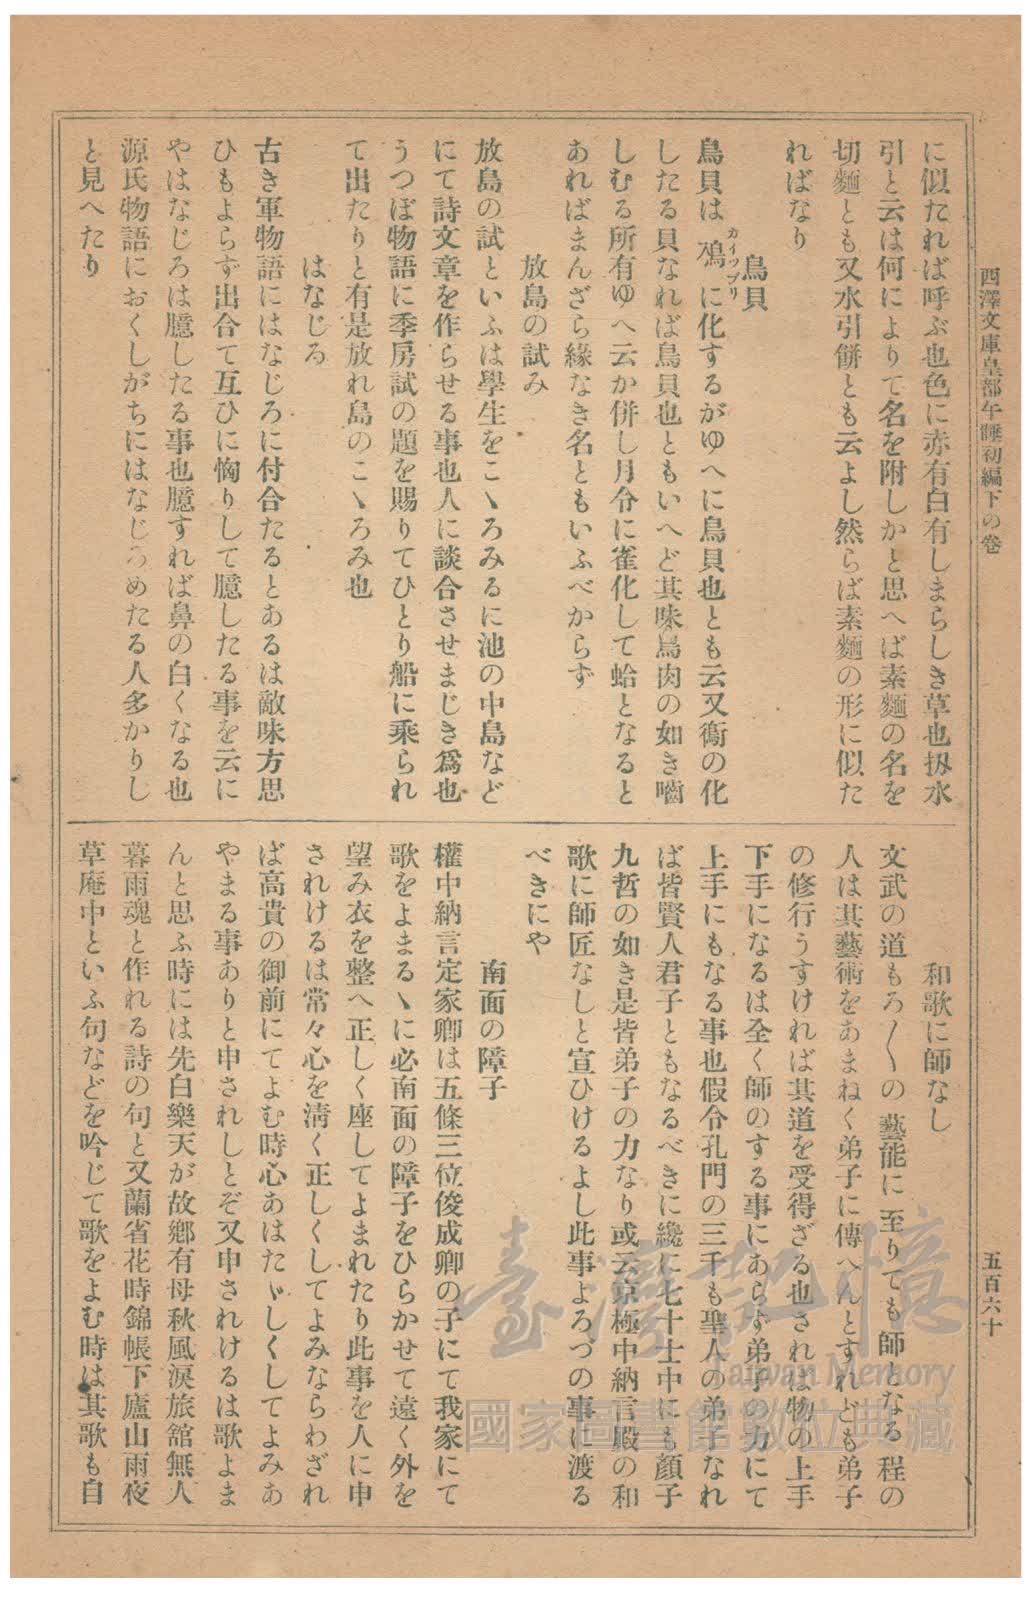 西澤文庫皇都午睡初編下の卷
五百六十
に似たれば呼ぶ也色に赤有白有しまらしき草也扨水
引と云は何によりて名を附しかと思へば素麵の名を
切麵とも又水引餅とも云よし然らば素麵の形に似た
ればなり
烏貝
烏貝は鸊に化するがゆへに烏貝也とも云又鵆の化
カイツブリ
したる貝なれば烏貝也ともいへど其味烏肉の如き嚙
しむる所有ゆへ云か併し月令に雀化して蛤となると
あればまんざら緣なき名ともいふべからず
放島の試み
放島の試といふは學生をこゝろみるに池の中島など
にて詩文章を作らせる事也人に談合させまじき爲也
うつぼ物語に季房試の題を賜りてひとり船に乘られ
て出たりと有是放れ島のこゝろみ也
はなじろ
古き軍物語にはなじろに付合たるとあるは敵味方思
ひもよらず出合て互ひに恟りして臆したる事を云に
やはなじろは臆したる事也臆すれば鼻の白くなる也
源氏物語におくしがちにはなじろめたる人多かりし
と見へたり
和歌に師なし
文武の道もろ〳〵の藝能に至りても師となる程の
人は其藝術をあまねく弟子に傳へんとすれども弟子
の修行うすければ其道を受得ざる也されば物の上手
下手になるは全く師のする事にあらず弟子の力にて
上手にもなる事也假令孔門の三千も聖人の弟子なれ
ば皆賢人君子ともなるべきに纔に七十士中にも顏子
九哲の如き是皆弟子の力なり或云京極中納言殿の和
歌に師匠なしと宣ひけるよし此事よろづの事に渡る
べきにや
南面の障子
權中納言定家卿は五條三位俊成卿の子にて我家にて
歌をよまるゝに必南面の障子をひらかせて遠く外を
望み衣を整へ正しく座してよまれたり此事を人に申
されけるは常々心を淸く正しくしてよみならわざれ
ば高貴の御前にてよむ時心あはたゞしくしてよみあ
やまる事ありと申されしとぞ又申されけるは歌よま
んと思ふ時には先白樂天が故鄕有母秋風淚旅舘無人
暮雨魂と作れる詩の句と又蘭省花時錦帳下廬山雨夜
草庵中といふ句などを吟じて歌をよむ時は其歌も自
臺灣記憶
Taiwan Memory
國家圖書館數位典藏